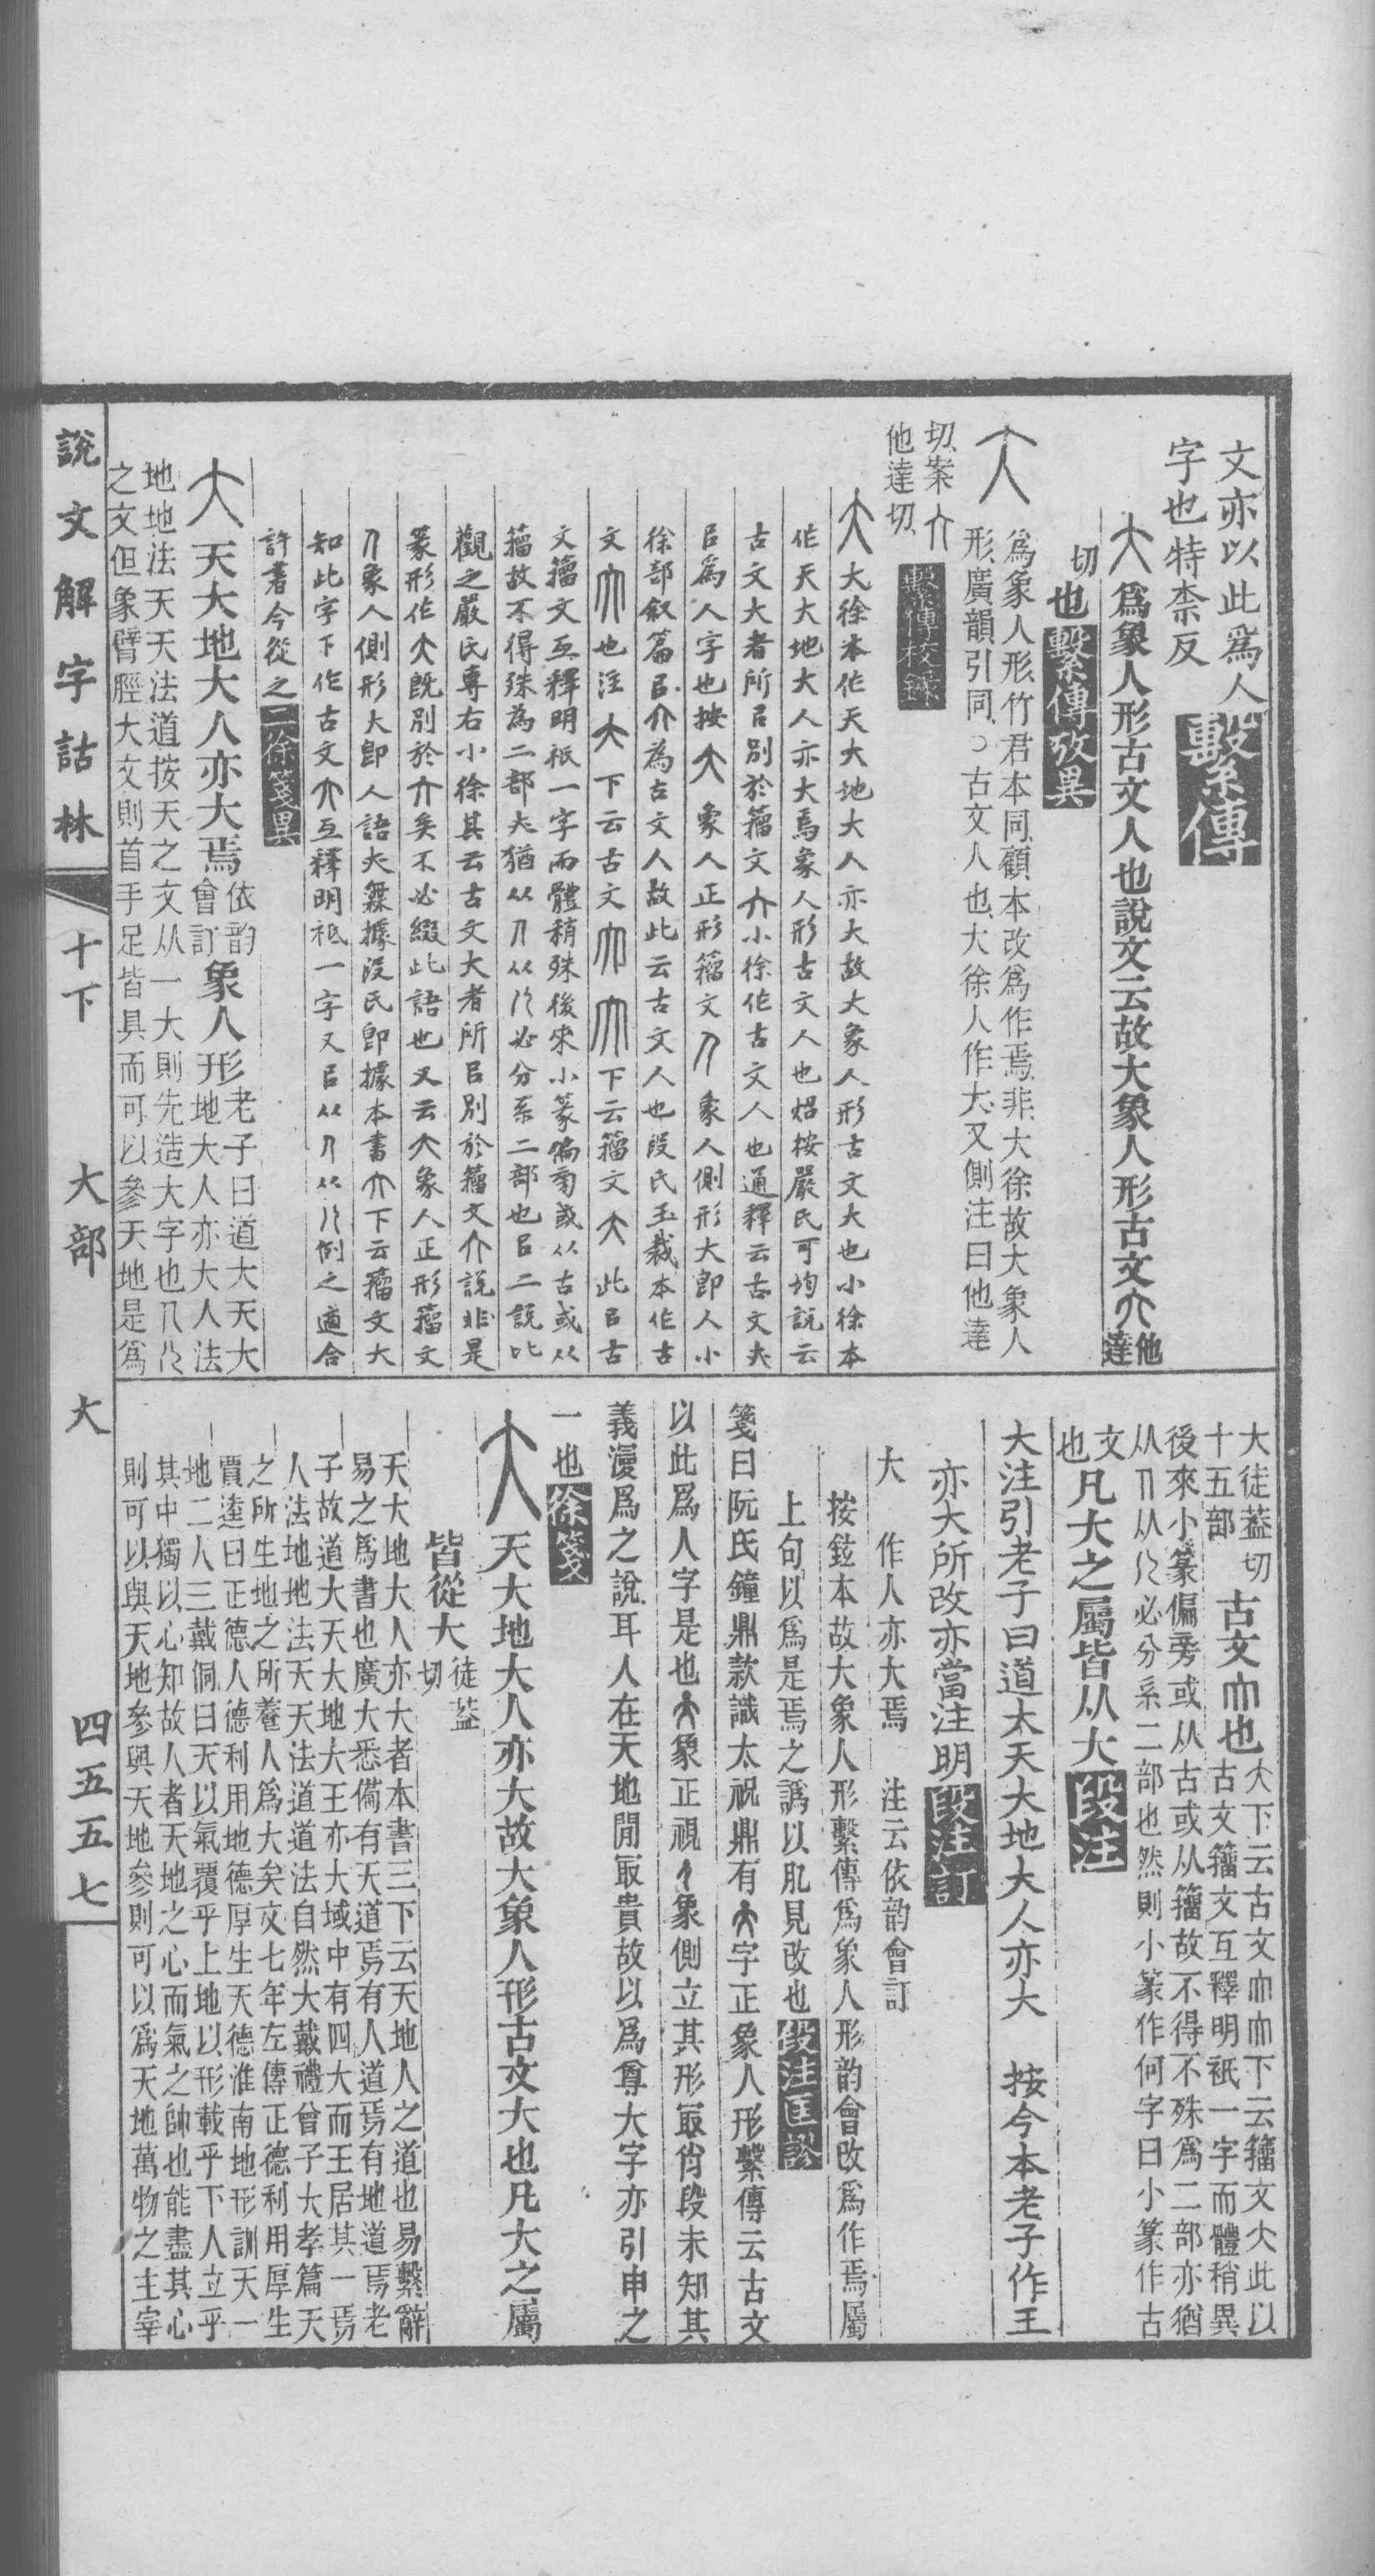 文亦以此爲人
字也特柰反
繫傳
大爲象人形古文人也說文云故大象人形古文𠘲他達
切也
繫傳攷異
大
爲象人形竹君本同顧本改爲作焉非大徐故大象人
形廣韻引同○古文人也大徐人作大又側注曰他達
切案𠘲
他達切
繫傳校錄
大大徐本作天大地大人亦大故大象人形古文大也小徐本
作天大地大人亦大焉象人形古文人也炤按嚴氏可均說云
古文大者所㠯別於籀文𠘲小徐作古文人也通釋云古文大
㠯爲人字也按大象人正形籀文人象人側形大卽人小
徐部敘篇㠯𠘲為古文人故此云古文人也段氏玉裁本作古
文𠘲也注大下云古文𠘲𠘲下云籀文大此㠯古
文籀文互釋明祇一字而體稍殊後來小篆偏旁或从古或从
籀故不得殊為二部大猶从𠘲从儿必分系二部也㠯二說比
觀之嚴氏專右小徐其云古文大者所㠯別於籀文𠘲說非是
篆形作大旣別於𠘲矣不必綴此語也又云大象人正形籀文
𠆢象人側形大卽人語尤無據段氏卽據本書𠘲下云籀文大
知此字下作古文𠘲互釋明祇一字又㠯从𠆢从儿例之適合
許書今從之
二徐箋異
大天大地大人亦大焉依韵會訂象人形老子曰道大天大
地大人亦大人法
地地法天天法道按天之文从一大則先造大字也𠆢儿
之文但象臂脛大文則首手足皆具而可以參天地是爲
大徒葢切
十五部
古文𠘲也大下云古文𠘲𠘲下云籀文大此以
古文籀文互釋明祇一字而體稍異
後來小篆偏旁或从古或从籀故不得不殊爲二部亦猶
从𠆢从儿必分系二部也然則小篆作何字曰小篆作古
文也凡大之屬皆从大
段注
大注引老子曰道大天大地大人亦大　按今本老子作王
亦大所改亦當注明
段注訂
大　作人亦大焉　注云依韵會訂
按鉉本故大象人形繫傳爲象人形韵會改爲作焉屬
上句以爲是焉之譌以肊見改也
段注匡謬
箋曰阮氏鐘鼎款識太祝鼎有大字正象人形繫傳云古文
以此爲人字是也大象正視人象側立其形㝡肖段未知其
義漫爲之說耳人在天地閒㝡貴故以爲尊大字亦引申之
一也
徐箋
大天大地大人亦大故大象人形古文大也凡大之屬
皆從大徒葢切
天大地大人亦大者本書三下云天地人之道也易繫辭
易之爲書也廣大悉備有天道焉有人道焉有地道焉老
子故道大天大地大王亦大域中有四大而王居其一焉
人法地地法天天法道道法自然大戴禮曾子大孝篇天
之所生地之所養人爲大矣文七年左傳正德利用厚生
賈逵曰正德人德利用地德厚生天德淮南地形訓天一
地二人三戴侗曰天以氣覆乎上地以形載乎下人立乎
其中獨以心知故人者天地之心而氣之帥也能盡其心
則可以與天地參與天地參則可以爲天地萬物之主宰
說文解字詁林　十下　大部　大　四五五七